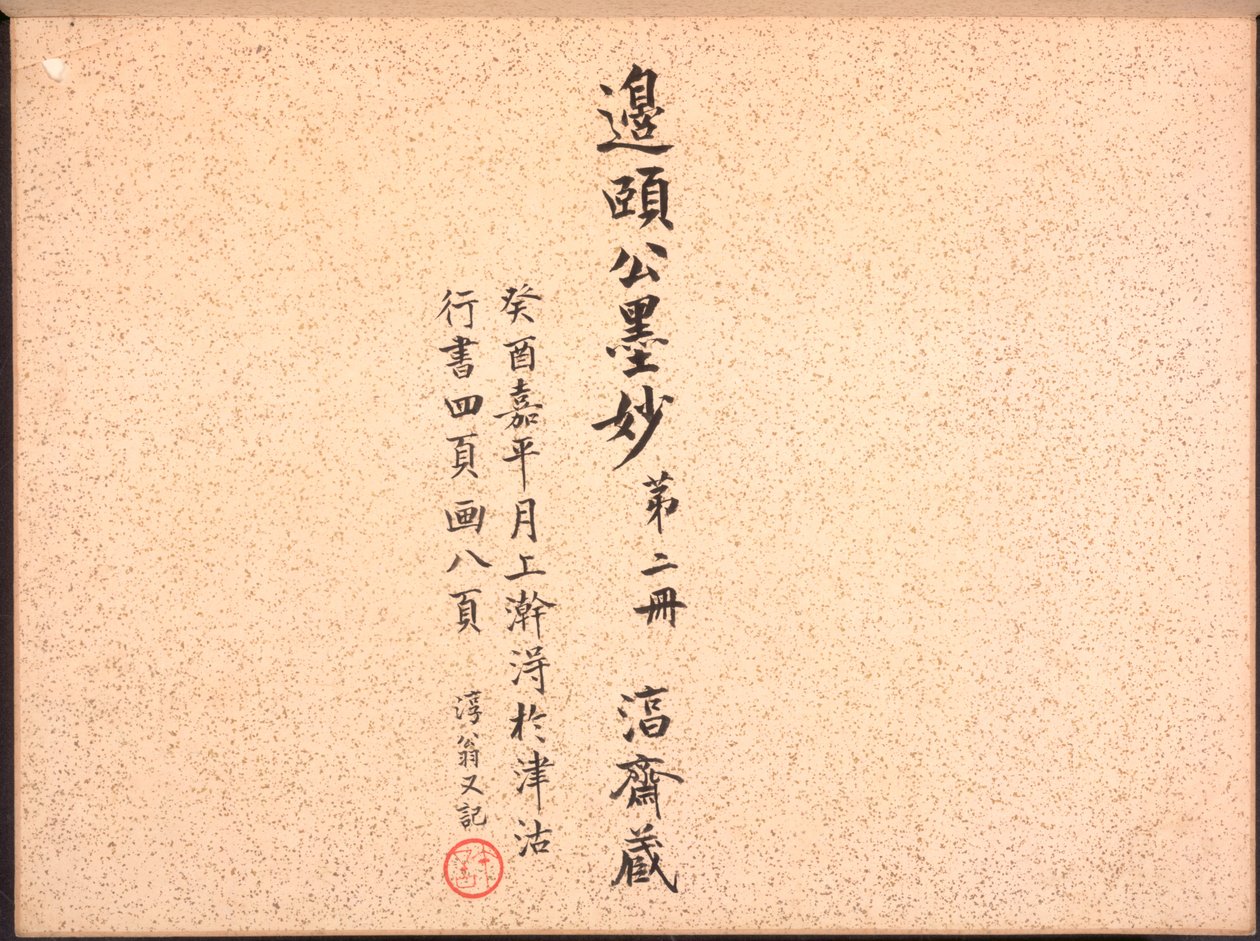 邊頤公墨妙 第二冊 湻齋藏
癸酉嘉平月上澣淂於津沽
行書四頁画八頁 淳翁又記